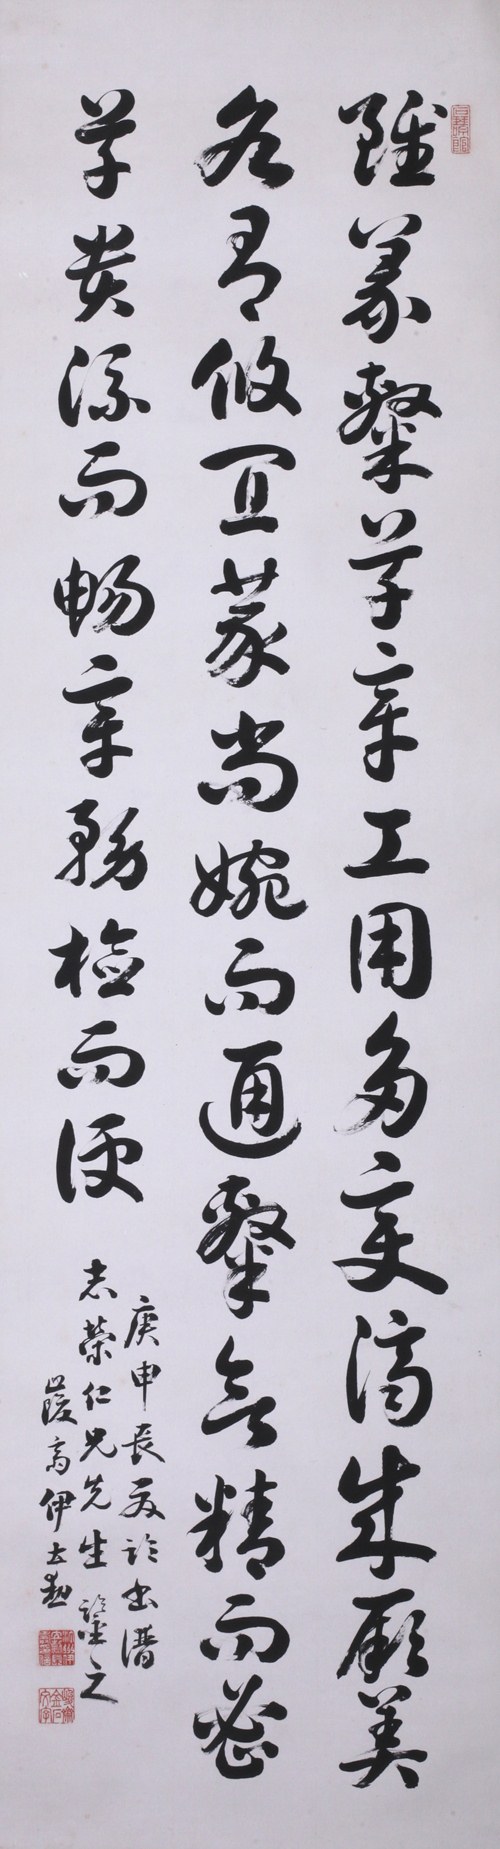 雖篆隸草章工用多變濟成厥美
各有攸宜篆尚婉而通隸欲精而密
草貴流而暢章務檢而便
庚申長夏臨書譜
志榮仁兄先生鑒之
峻齋伊立勳